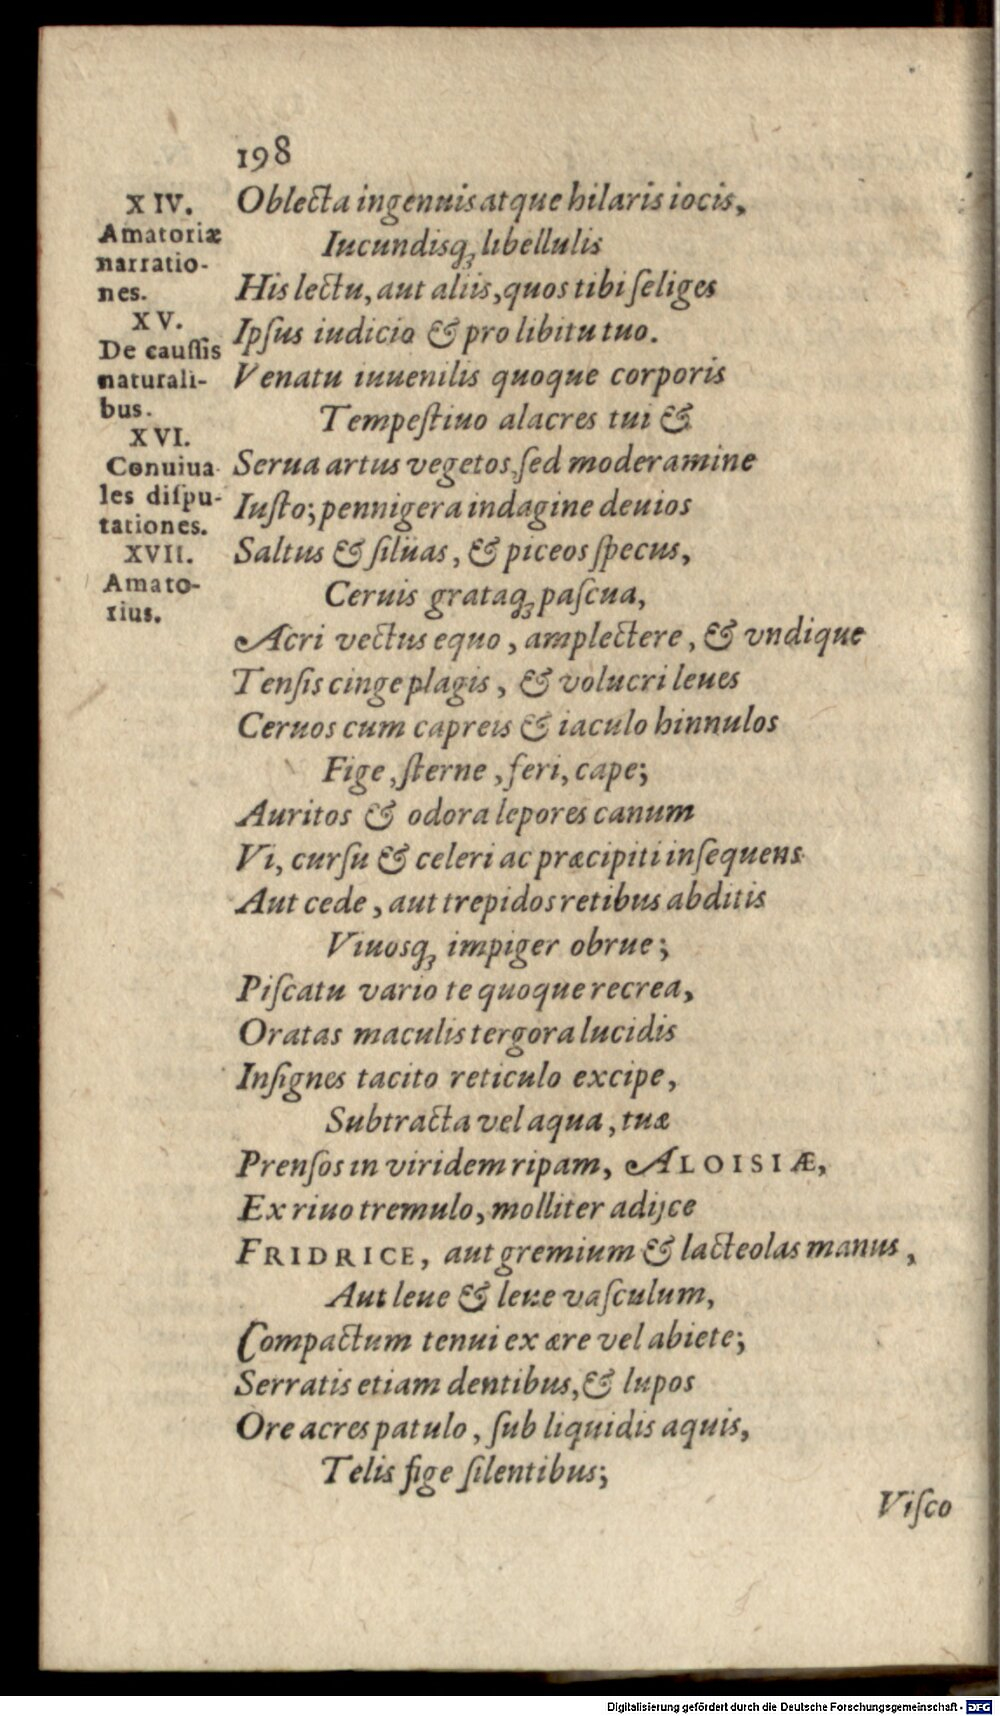 198
XIV.
Amatoriæ
narratio-
nes.
XV.
De cauſſis
naturali-
bus.
XVI.
Conuiua-
les diſpu-
tationes.
XVII.
Amato-
rius.
Oblecta ingenuis atque hilaris iocis,
Iucundisq́ꝫ libellulis
His lectu, aut aliis, quos tibi ſeliges
Ipſus iudicio & pro libitu tuo.
Venatu iuuenilis quoque corporis
Tempeſtiuo alacres tui &
Serua artus vegetos, ſed moderamine
Iuſto; pennigera indagine deuios
Saltus & ſilüas, & piceos ſpecus,
Ceruis grataqꝫ paſcua,
Acri vectus equo, amplectere, & vndique
Tenſis cinge plagis, & volucri leues
Ceruos cum capreis & iaculo hinnulos
Fige, ſterne, feri, cape;
Auritos & odora lepores canum
Vi, curſu & celeri ac præcipiti inſequens
Aut cede, aut trepidos retibus abditis
Viuosqꝫ impiger obrue;
Piſcatu vario te quoque recrea,
Oratas maculis tergora lucidis
Inſignes tacito reticulo excipe,
Subtracta vel aqua, tuæ
Prenſos in viridem ripam, ALOISIÆ,
Ex riuo tremulo, molliter adijce
FRIDRICE, aut gremium & lacteolas manus,
Aut leue & leue vaſculum,
Compactum tenui ex ære vel abiete;
Serratis etiam dentibus, & lupos
Ore acres patulo, ſub liquidis aquis,
Telis fige ſilentibus;
Viſco
Digitalisierung gefördert durch die Deutsche Forschungsgemeinschaft - DFG